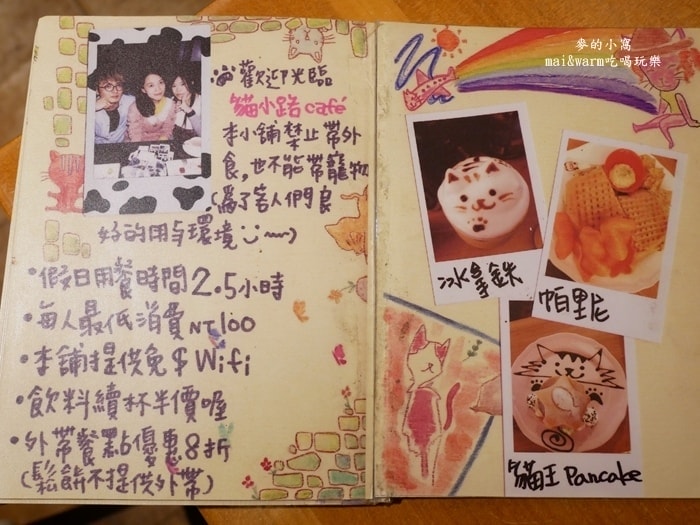 歡迎光臨
貓小路 café
本小舖禁止帶外
食,也不能帶寵物
(為了客人們良
好的用餐環境
•假日用餐時間2.5小時
•每人最低消費NT100
•本舖提供免$Wifi
•飲料續杯半價喔
•外帶餐點優惠8折
(鬆餅不提供外帶)
麥的小窩
mai&warm吃喝玩樂
冰拿鐵
帕里尼
貓王 Pancake